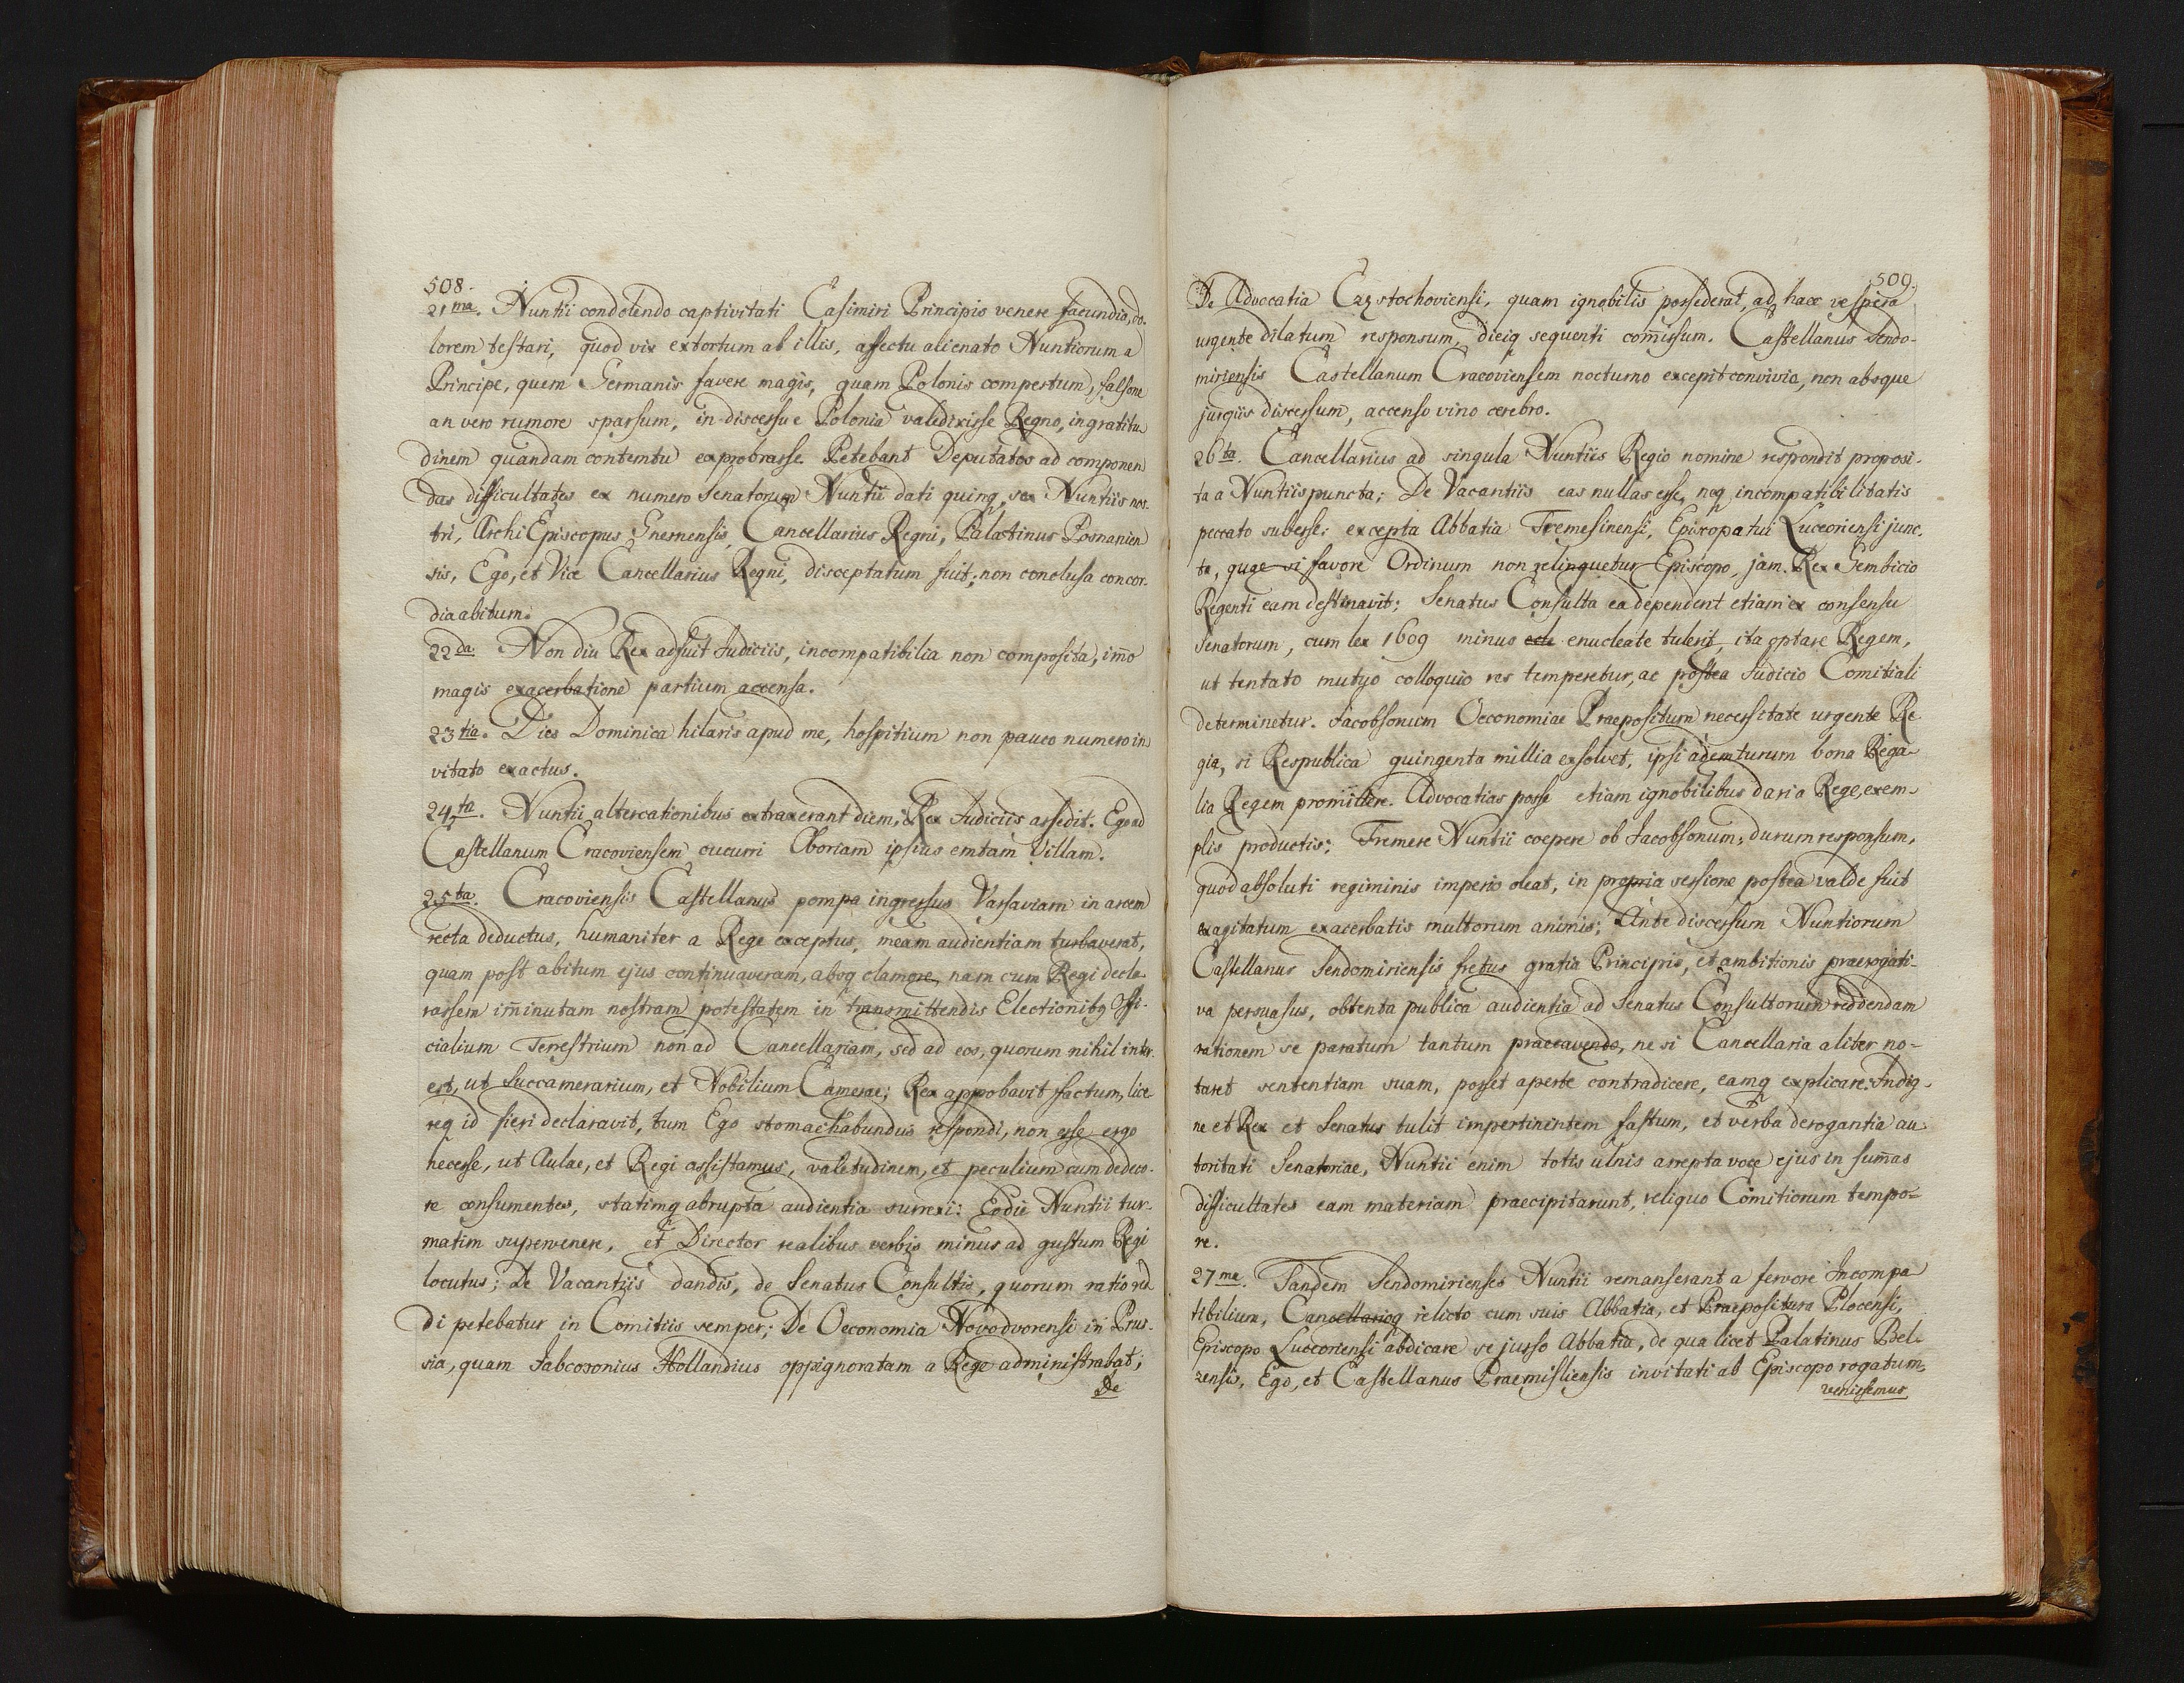 508.
21ma. Nuntii condolendo captivitati Casimiri Principis venere facundia, do-
lorem testari, quod vix extortum ab illis, affectu alienato Nuntiorum a
Principe, quem Germanis favere magis, quam Polonis compertum, falsone
an vero rumore sparsum, in discessu e Polonia valedixisse Regno, ingratitu-
dinem quandam contemtu exprobrasse. Petebant Deputatos ad componen
das difficultates ex numero Senatorum Nuntii dati quinq, sex Nuntiis nos-
tri, Archi Episcopus Gnesnensis, Cancellarius Regni, Palatinus Posnanien
sis, Ego, et Vice Cancellarius Regni, disceptatum fuit; non conclusa concor-
dia abitum.
22da. Non diu Rex adfuit Judiciis, incompatibilia non composita, im̄o
magis exacerbatione partium accensa.
23tia. Dies Dominica hilaris apud me, hospitium non pauco numero in
vitato exactus.
24ta. Nuntii altercationibus extraxerant diem, Rex Judiciis assedit. Ego ad
Castellanum Cracoviensem cucurri Oboriam ipsius emtam Villam.
25ta. Cracoviensis Castellanus pompa ingressus Varsaviam in arcem
recta deductus, humaniter a Rege exceptus, meam audientiam turbaverat,
quam post abitum ejus continuaveram, absq clamore, nam cum Regi decla-
rassem im̄inutam nostram potestatem in transmittendis Electionibq Offi-
cialium Terrestrium non ad Cancellariam, sed ad eos, quorum nihil inter
est, ut Succamerarium, et Nobilium Camerae; Rex approbavit factum, lice-
req id fieri declaravit, tum Ego stomachabundus respondi, non esse ergo
necesse, ut Aulae, et Regi assistamus, valetudinem, et peculium cum dedeco-
re consumentes, statimq abrupta audientia surrexi: Eodu Nuntii tur-
matim supervenere, et Director realibus verbis minus ad gustum Regi
locutus; de Vacantiis dandis, de Senatus Consultis, quorum ratio red
di petebatur in Comitiis semper; De Oeconomia Novodvorensi in Prus-
sia, quam Jabcosonius Hollandius oppignoratam a Rege administrabat;
De
509.
De Advocatia Częstochoviensi, quam ignobilis possederat, ad haec vespera
urgente dilatum responsum, dieiq sequenti com̄issum. Castellanus Sendo-
miriensis Castellanum Cracoviensem nocturno excepit convivio, non absque
jurgiis discessum, accenso vino cerebro.
26ta. Cancellarius ad singula Nuntiis Regio nomine respondit proposi-
ta a Nuntiis puncta; De Vacantiis eas nullas esse, neq incompatibilitatis
peccato subesse, excepta Abbatia Tremesinensi, Episcopatui Luceoriensi junc-
ta, quae si favore Ordinum non relinquetur Episcopo, jam Rex Gembicio
Regenti eam destinavit; Senatus Consulta ea dependent etiam ex consensu
Senatorum, cum lex 1609 minus enucleate tulerit, ita optare Regem,
ut tentato mutuo colloquio res temperetur, ac postea Judicio Comitiali
determinetur. Jacobsonum Oeconomiae Praepositum necessitate urgente Re
gia, si Respublica quingenta millia exsolvet, ipsi ademturum bona Rega-
lia Regem promittere. Advocatias posse etiam ignobilibus dari a Rege, exem-
plis productis; Fremere Nuntii coepere ob Jacobsonum, durum responsum,
quod absoluti regiminis imperio oleat, in propria sessione postea valde fuit
exagitatum exacerbatis multorum animis; Ante discessum Nuntiorum
Castellanus Sendomiriensis fretus gratia Principis, et ambitionis praerogati-
va persuasus, obtenta publica audientia ad Senatus Consultorum reddendam
rationem se paratum tantum praecavendo, ne si Cancellaria aliter no-
taret sententiam suam, posset aperte contradicere, eamq explicare. Indig-
ne et Rex et Senatus tulit impertinentem fastum, et verba derogantia au
toritati Senatoriae, Nuntii enim totis ulnis arrepta voce ejus in sum̄as
difficultates eam materiam praecipitarunt, reliquo Comitiorum tempo=
re.
27ma. Tandem Sendomirienses Nuntii remanserant a fervore Incompa
tibilium, Cancellarioq relicto cum suis Abbatia, et Praepositura Plocensi,
Episcopo Luceoriensi abdicare se jusso Abbatia, de qua licet Palatinus Bel-
zensis, Ego, et Castellanus Praemisliensis invitati ab Episcopo rogatum
venissemus